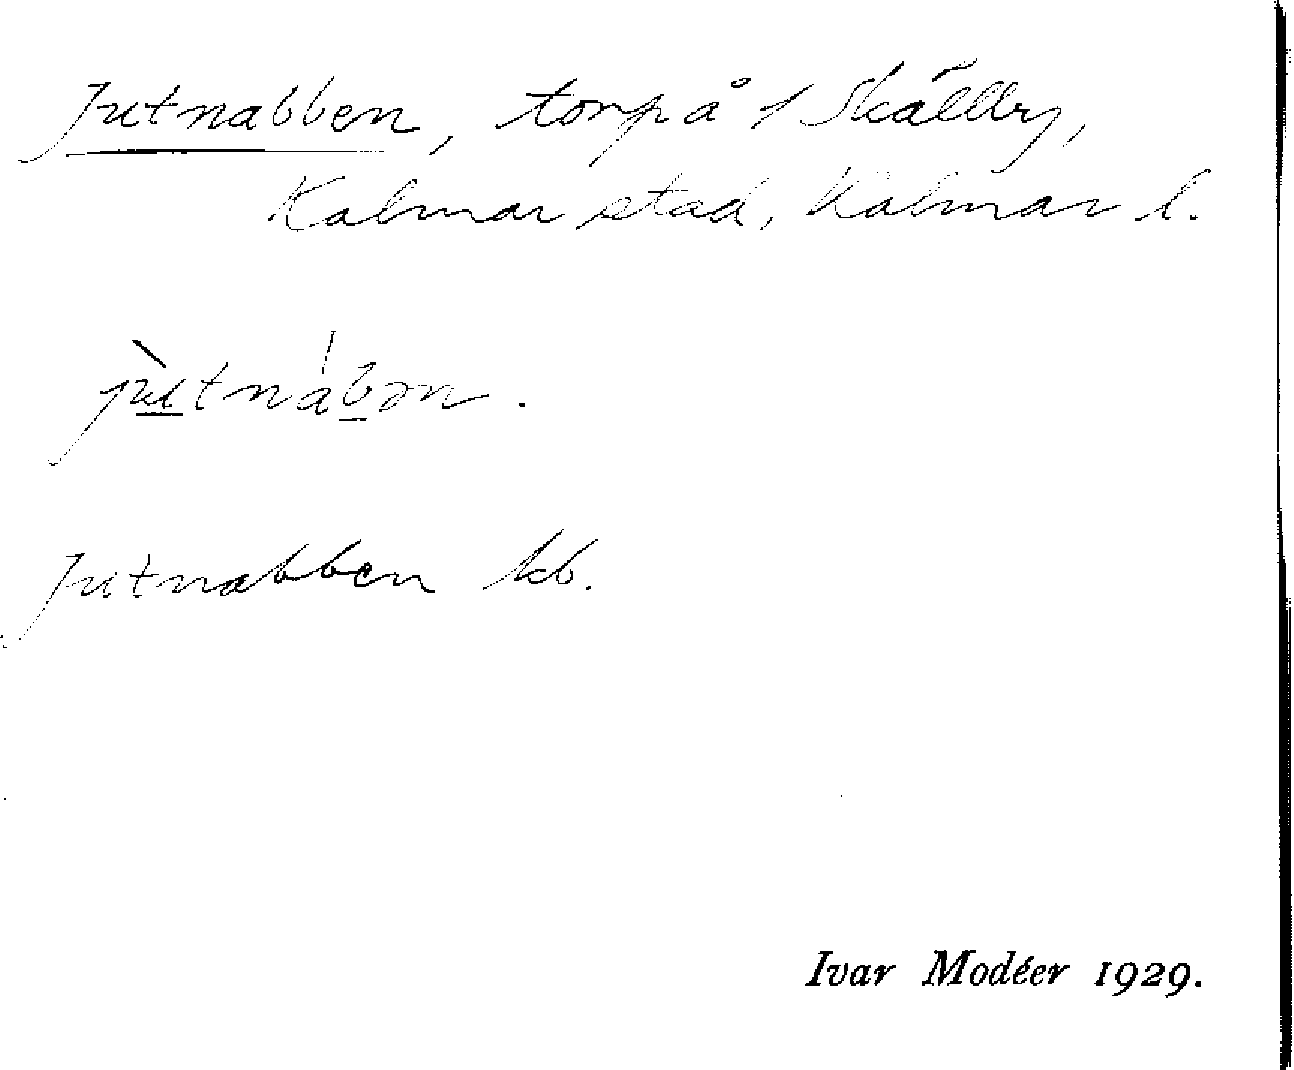 Jutnabben, torp å 1 Skälby,
Kalmar stad, Kalmar l.
jùtnábən.
Jutnabben kb.
Ivar Modéer 1929.